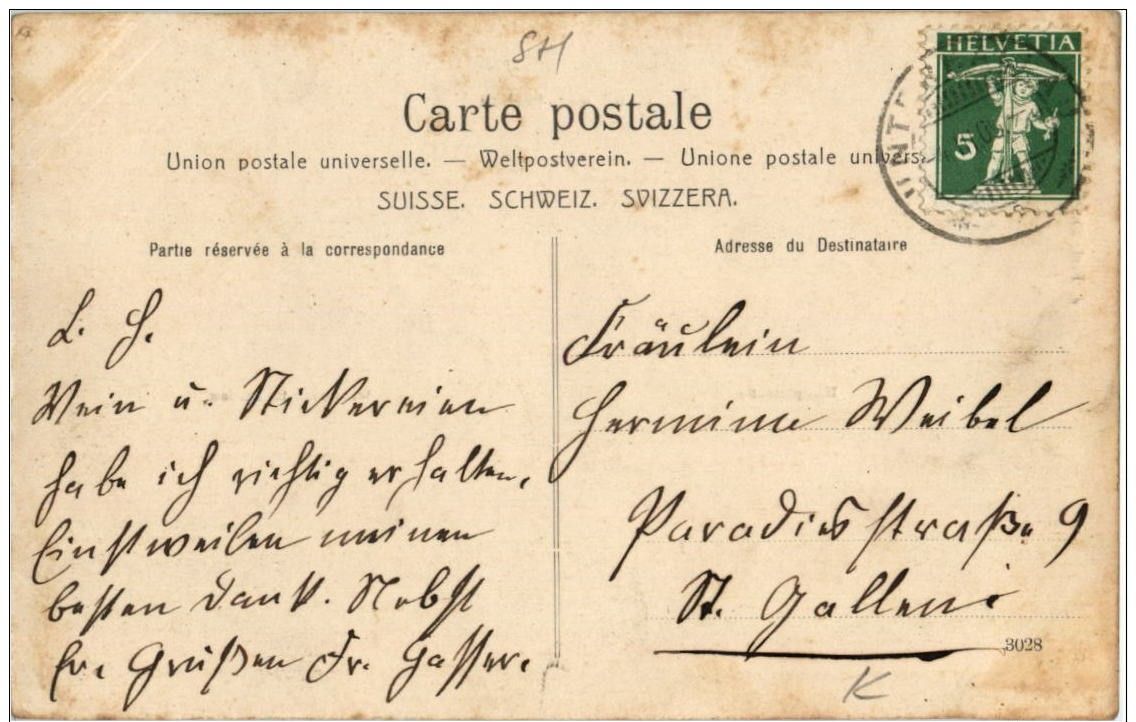 SH
HELVETIA
5
Carte postale
Union postale universelle. — Weltpostverein. — Unione postale univers.
SUISSE. SCHWEIZ. SVIZZERA.
Partie réservée à la correspondance
L. H.
Wein u. Stickereien
habe ich richtig erhalten,
Einstweilen meinen
besten Dank. Nebst
fr. Grüßen Fr. Gasser.
Adresse du Destinataire
Fräulein
Hermine Weibel
Paradiesstraße 9
St. Gallen
3028
K